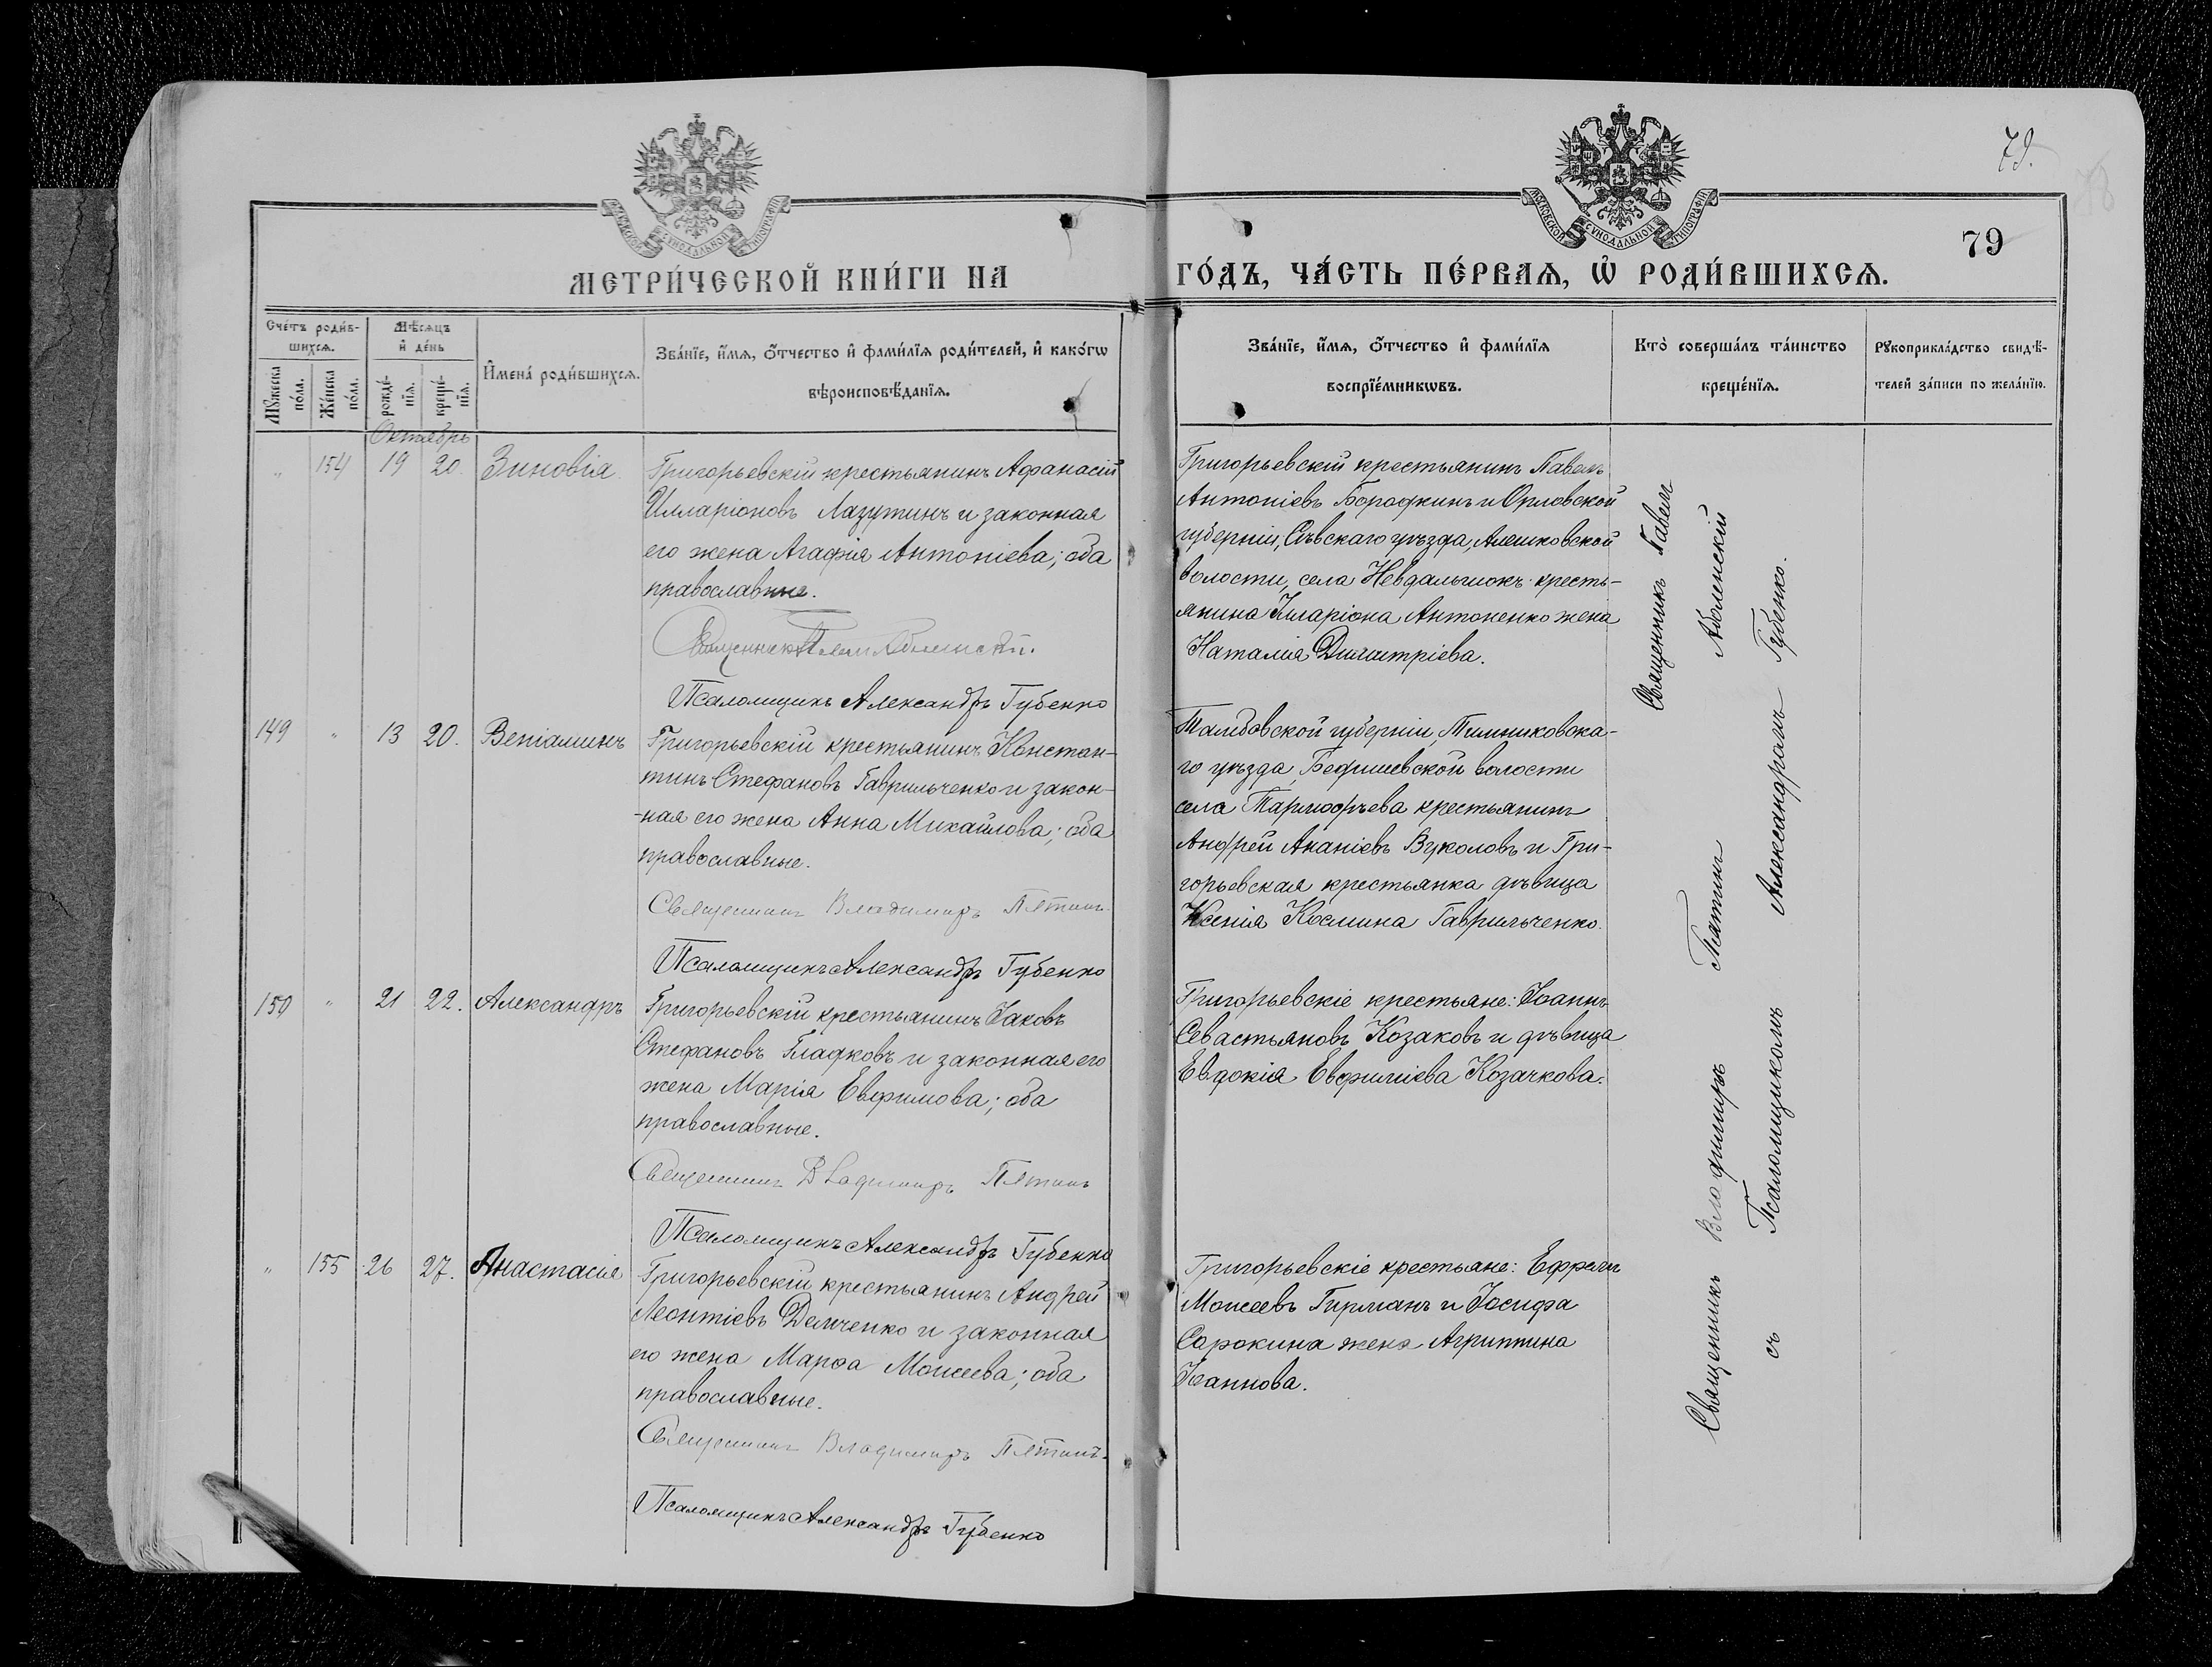 79.
79
МОСКОВСКОЙ СУНОДАЛЬНОЙ ТИПОГРАФІИ
МОСКОВСКОЙ СУНОДАЛЬНОЙ ТИПОГРАФІИ
МЕТРИ́ЧЕСКОЙ КНИ́ГИ НА
ГО́ДЪ, ЧА́СТЬ ПЕ́РВАѦ, Ѡ҆ РОДИ́ВШИХСѦ.
Сче́тъ роди́в-
шихсѧ.
Мꙋ́жеска
по́ла.
Же́нска
по́ла.
Мѣ́сѧцъ
и҆ де́нь
рожде́-
нїѧ.
креще́-
нїѧ.
И҆мена̀ роди́вшихсѧ.
Зва́нїе, и҆́мѧ, ѻ҆́тчество и҆ фами́лїѧ роди́телей, и҆ како́гѡ
вѣроисповѣ́данїѧ.
Зва́нїе, и҆́мѧ, ѻ҆́тчество и҆ фами́лїѧ
воспрїе́мникѡвъ.
Кто̀ соверша́лъ та́инство
креще́нїѧ.
Рꙋкоприкла́дство свидѣ́-
телей за́писи по жела́нїю.
Октябрь
„ 154 19 20. Зиновія.
Григорьевскій крестьянинъ Афанасій
Илларіоновъ Лазутинъ и законная
его жена Агафія Антоніева; оба
православные.
Священникъ Павелъ Аболенскій.
Псаломщикъ Александръ Губенко
Григорьевскій крестьянинъ Павелъ
Антоніевъ Бородкинъ и Орловской
губерніи, Сѣвскаго уѣзда, Алешковской
волости, села Невдальчюкъ кресть-
янина Иларіона Антоненко жена
Наталія Димитріева.
149 „ 13 20. Веніаминъ
Григорьевскій крестьянинъ Констан-
тинъ Стефановъ Гаврильченко и закон-
-ная его жена Анна Михайлова; оба
православные.
Священникъ Владимиръ Пятинъ.
Псаломщикъ Александръ Губенко
Тамбовской губерніи, Темниковска-
го уѣзда, Бедишевской волости
села Тармодѣева крестьянинъ
Андрей Ананіевъ Вуколовъ и Гри-
горьевская крестьянка дѣвица
Ксенія Космина Гаврильченко.
150 „ 21 22. Александръ
Григорьевскій крестьянинъ Іаковъ
Стефановъ Гладковъ и законная его
жена Марія Евфимова; оба
православные.
Священникъ Владимиръ Пятинъ
Псаломщикъ Александръ Губенко
Григорьевскіе крестьяне: Іоаннъ
Севастьяновъ Козаковъ и дѣвица
Евдокія Евфиміева Козачкова.
„ 155 26 27. Анастасія
Григорьевскій крестьянинъ Андрей
Леонтіевъ Демченко и законная
его жена Марфа Моисеева; оба
православные.
Священникъ Владимиръ Пятинъ.
Псаломщикъ Александръ Губенко
Григорьевскіе крестьяне: Ефремъ
Моисеевъ Гирманъ и Іосифа
Сорокина жена Агриппина
Іоаннова.
Священникъ Павелъ
Аболенскій
Священникъ Владимиръ Пятинъ
съ Псаломщикомъ Александромъ Губенко.